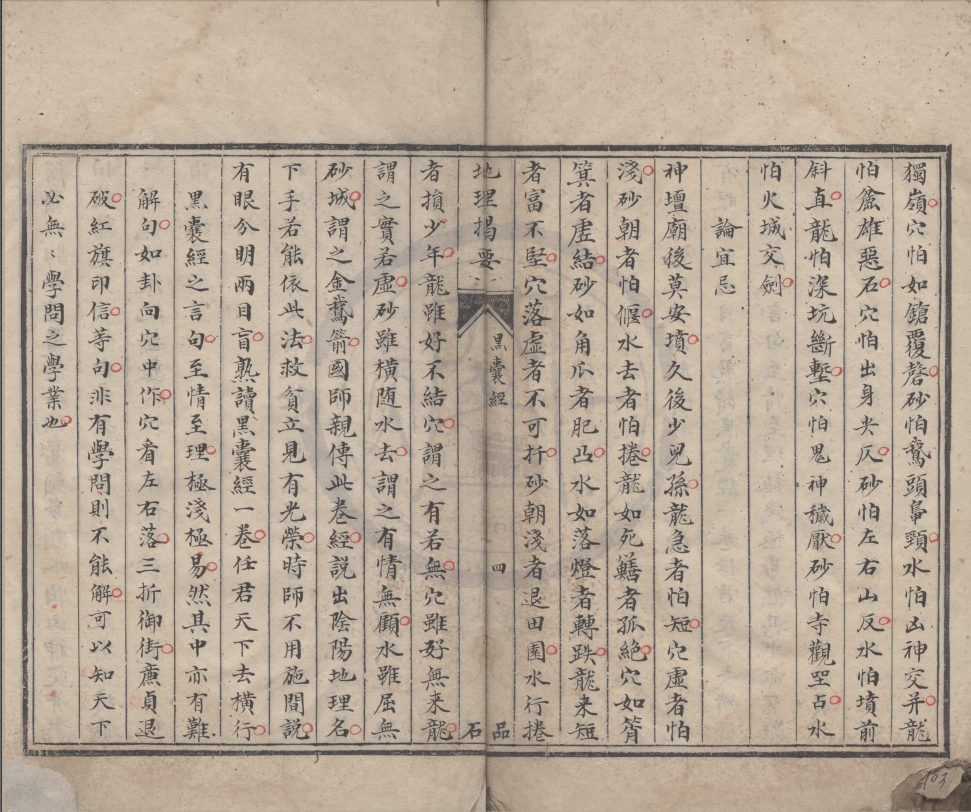 獨嶺穴怕如鎗覆磬砂怕鵞頭鼻頸水怕凶神交并龍
怕𥫱雄惡石穴怕出身尖仄砂怕左右山反水怕墳前
斜直龍怕深坑斷塹穴怕鬼神穢厭砂怕寺觀罡占水
怕火城交劍
論宜忌
神壇廟後莫安墳久後少兒孫龍急者怕短穴虛者怕
淺砂朝者怕偃水去者怕捲龍如死鱔者孤絕穴如筲
箕者虛結砂如角瓜者肥凸水如落燈者轉跌龍来短
者富不堅穴落虛者不可扦砂朝淺者退田園水行捲
地理揭要
黑囊經
四
品石
者損少年龍雖好不結穴謂之有若無穴雖好無来龍
謂之實若虛砂雖橫随水去謂之有情無顧水雖屈無
砂城謂之金鵞箭國師親傳此卷經説出陰陽地理名
下手若能依此法救貧立見有光榮時師不用施閒説
有眼分明兩目盲熟讀黑囊經一卷任君天下去橫行
黑囊經之言句至情至理極淺極易然其中亦有難
解句如卦向穴中作穴看左右落三折御街廉貞退
破紅旗印信等句非有學問則不能解可以知天下
必無﹕學問之學業也